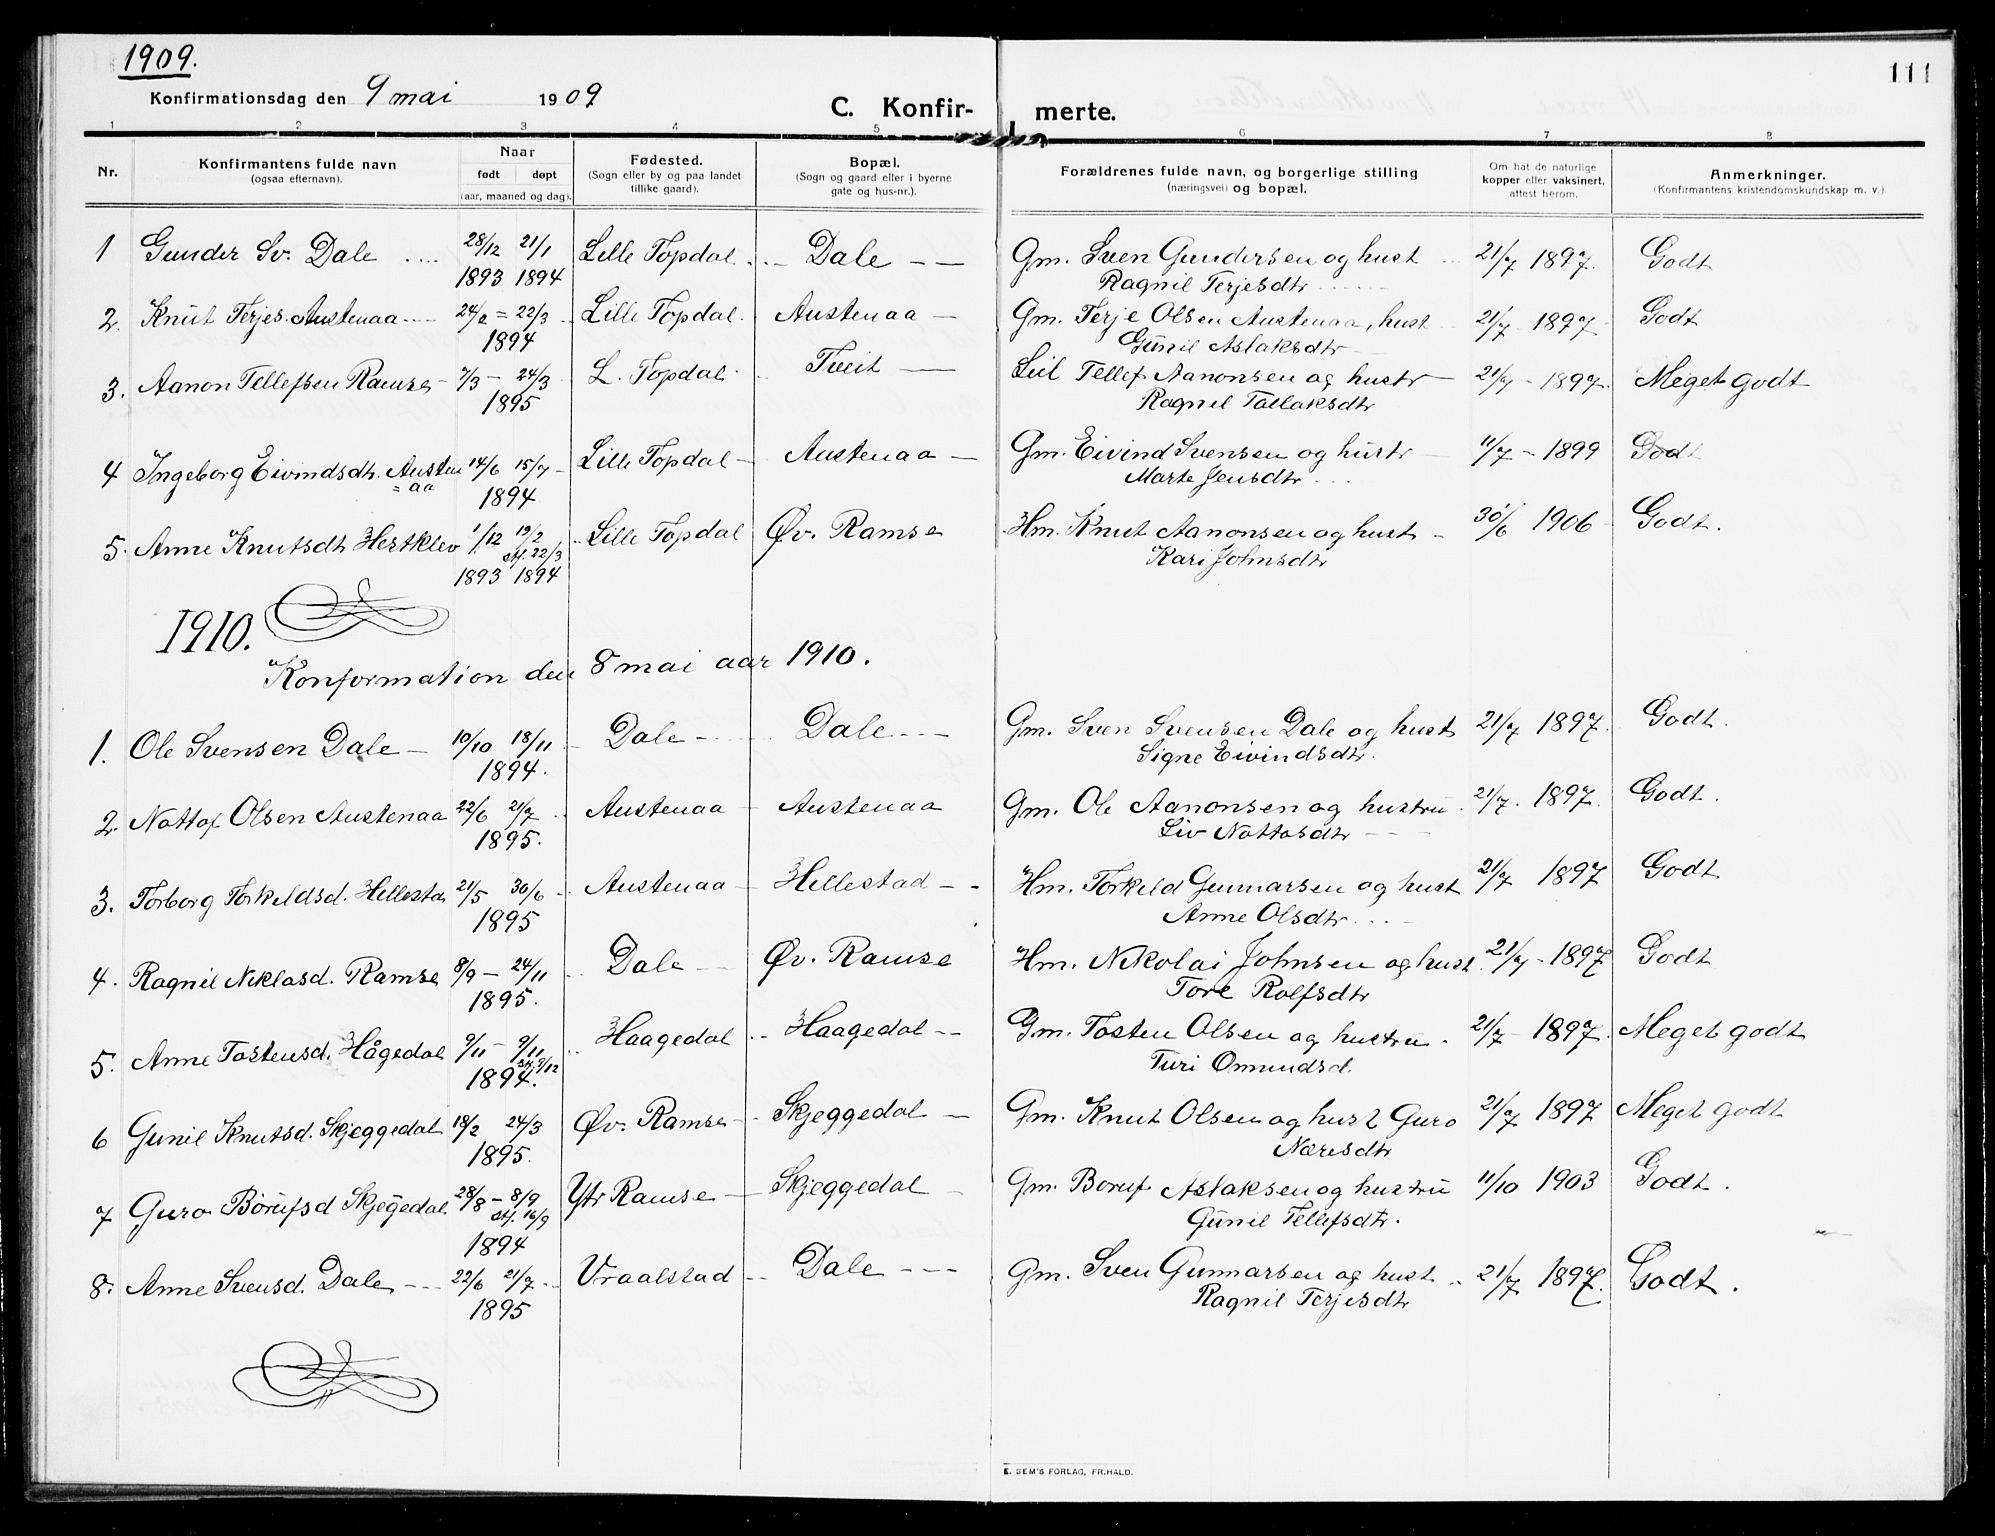 1909.
111
Konfirmationsdag den 9 mai 1909
C. Konfirmerte.
1 2 3 4 5 6 7 8
Nr. Konfirmantens fulde navn (ogsaa efternavn). Naar født døpt (aar, maaned og dag). Fødested. (Sogn eller by og paa landet tillike gaard). Bopæl. (Sogn og gaard eller i byerne gate og hus-nr.). Forældrenes fulde navn, og borgerlige stilling (næringsvei) og bopæl. Om hat de naturlige kopper eller vaksinert, attest herom. Anmerkninger. (Konfirmantens kristendomskundskap m. v.)
1 Gunder Sv. Dale .... 28/12 21/1 Lille Topdal Dale Gm. Sven Gundersen og hust 21/7 1897. Godt
1893 1894 Ragnil Terjesdtr
2. Knut Terjes. Austenaa 24/2 = 22/3 Lille Topdal Austenaa Gm. Terje Olsen Austenaa, hust 21/7 1897 Godt
1894 Gunil Aslaksdtr
3. Aanon Tellefsen Ramse 7/3 - 24/3 L. Topdal Tveit Leil Tellef Aanonsen og hustr 21/7 - 1897. Meget godt
1895 Ragnil Tallaksdtr
4 Ingeborg Eivindsdtr. Austen 14/6 15/7 Lille Topdal Austenaa Gm. Eivind Svensen og hustr 11/7 - 1899 Godt
= aa 1894 Marte Jensdtr
5. Anne Knutsdt Hertklev 1/12 19/2 Lille Topdal Øv. Ramse Hm. Knut Aanonsen og hust 30/6 1906 Godt.
st. 22/3
1893 1894 Kari Johnsdtr
1910.
Konformation den 8 mai aar 1910.
1. Ole Svensen Dale 10/10 18/11 Dale Dale Gm. Sven Svensen Dale og hust 21/7 1897. Godt.
1894. Signe Eivindsdtr.
2. Nottof Olsen Austenaa 22/6 21/7 Austenaa Austenaa Gm. Ole Aanonsen og hustru 21/7. 1897. Godt.
1895. Liv Nottosdtr
3. Torborg Torkeldsd. Hellesta 21/5 30/6 Austenaa Hellestad Hm. Torkeld Gunnarsen og hust 21/7 1897 Godt
1895 Anne Olsdtr
4. Ragnil Niklasd. Ramse 8/9 - 24/11 Dale Øv. Ramse Hm. Nikolai Johnsen og hust. 21/7 - 1897 Godt
1895. Tore Rolfsdtr
5. Anne Tostensd. Hågedal 9/11 - 9/11 Haagedal Haagedal Gm. Tosten Olsen og hustru 21/7 - 1897. Meget godt
1894. st. 9/12 Turi Omundsd.
6 Gunil Knutsd. Skjeggedal 18/2 24/3 Øv. Ramse Skjeggedal Gm. Knut Olsen og hust Guro 21/7 1897 Meget godt
1895. Næresdtr
7 Guro Børufsd Skjegedal 28/8 - 8/9 Ytr Ramse Skjeggedal Gm. Boruf Aslaksen og hustru 11/10 1903 Godt.
st. 16/9
1894 Gunil Tellefsdtr.
8. Anne Svensd. Dale 22/6 21/7 Vraalstad Dale Gm. Sven Gunnarsen og hust 21/7 1897. Godt.
1895 Ragnil Terjesdtr
E. SEM'S FORLAG, FR.HALD.